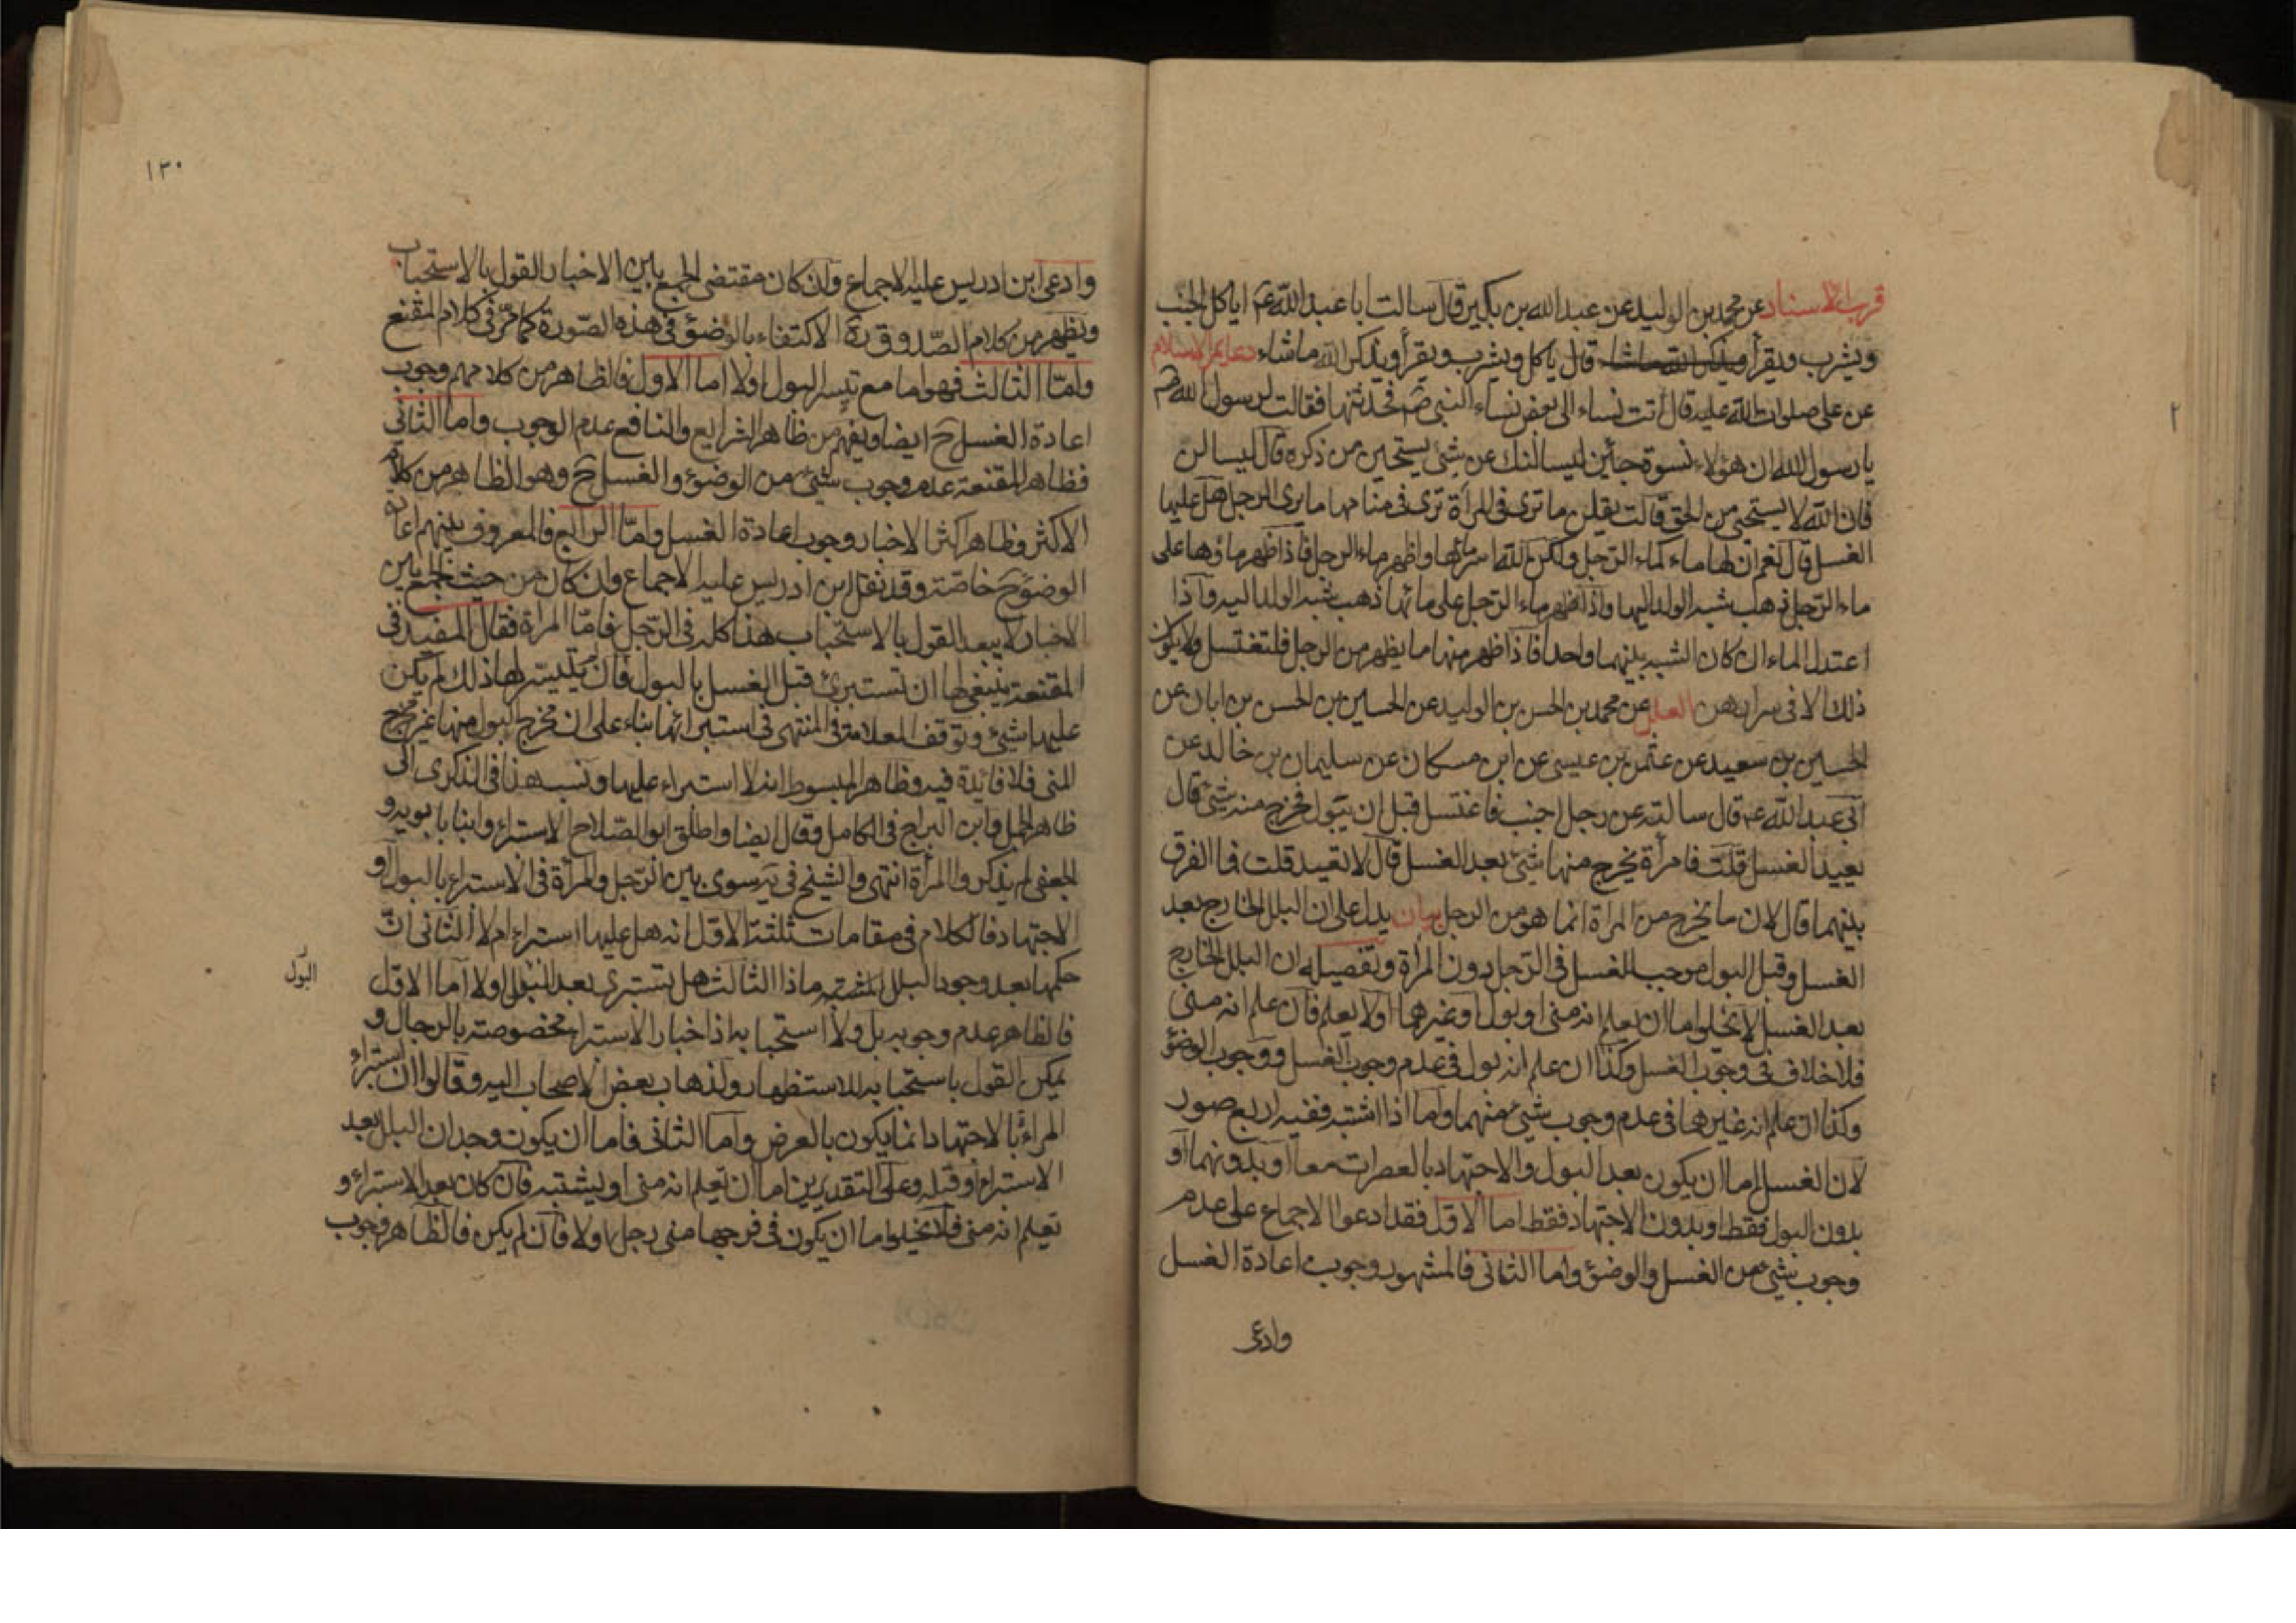 قرب الاسناد عن محمد بن الوليد عن عبد الله بن بكير قال سالت ابا عبد الله عم اياكل الجنب
ويشرب ويقرأ ويذكر الله ماشاء قال ياكل ويشرب ويقرأ ويذكر الله ماشاء دعايم الاسلام
عن علي صلوات الله عليه قال اتت نساء الى بعض نساء النبي صم فحدثتها فقالت لرسول الله صم
يا رسول الله ان هؤلاء نسوة جئن ليسالنك عن شيء يستحيين من ذكره قال ليسالن
فان الله لا يستحيي من الحق قالت يقلن ما ترى في المرأة ترى في منامها ما يرى الرجل هل عليها
الغسل قال نعم ان لها ماء كماء الرجل ولكن الله اسر ماءها واظهر ماء الرجل فاذا ظهر ماؤها على
ماء الرجل ذهب شبه الولد اليها واذا ظهر ماء الرجل على مائها ذهب شبه الولد اليه واذا
اعتدل الماءان كان الشبه بينهما واحدا فاذا ظهر منها ما يظهر من الرجل فلتغتسل ولا يكون
ذلك الا في شرارهن العلل عن محمد بن الحسن بن الوليد عن الحسين بن الحسن بن ابان عن
الحسين بن سعيد عن عثمن بن عيسى عن ابن مسكان عن سليمان بن خالد عن
ابي عبد الله عم قال سالته عن رجل اجنب فاغتسل قبل ان يبول فخرج منه شيء قال
يعيد الغسل قلت فامرأة يخرج منها شيء بعد الغسل قال لا تعيد قلت فما الفرق
بينهما قال لان ما يخرج من المراة انما هو من الرجل بيان يدل على ان البلل الخارج بعد
الغسل وقبل البول موجب للغسل في الرجل دون المرأة وتفصيله ان البلل الخارج
بعد الغسل لا يخلوا اما ان يعلم انه مني او بول او غيرهما او لا يعلم فان علم انه مني
فلا خلاف في وجوب الغسل وكذا ان علم انه بول في عدم وجوب الغسل ووجوب الوضوء
وكذا ان علم انه غيرها في عدم وجوب شيء منهما واما اذا اشتبه ففيه اربع صور
لان الغسل اما ان يكون بعد البول والاجتهاد بالعصرات معا او بدونهما او
بدون البول فقط او بدون الاجتهاد فقط اما الاول فقد ادعوا الاجماع على عدم
وجوب شيء من الغسل والوضوء واما الثاني فالمشهور وجوب اعادة الغسل
وادعى
٢
١٣٠
وادعى ابن ادريس عليه الاجماع وان كان مقتضى الجمع بين الاخبار القول بالاستحباب
ويظهر من كلام الصدوق ره الاكتفاء بالوضوء في هذه الصورة كما مر في كلام المقنع
واما الثالث فهو اما مع تيسر البول اولا اما الاول فالظاهر من كلامهم وجوب
اعادة الغسل ح ايضا ويفهم من ظاهر الشرايع والنافع عدم الوجوب واما الثاني
فظاهر المقنعة عدم وجوب شيء من الوضوء والغسل ح وهو الظاهر من كلام
الاكثر وظاهر اكثر الاخبار وجوب اعادة الغسل واما الرابع فالمعروف بينهم اعادة
الوضوء ح خاصة وقد نقل ابن ادريس عليه الاجماع وان كان من حيث الجمع بين
الاخبار لا يبعد القول بالاستحباب هذا كله في الرجل فاما المراة فقال المفيد في
المقنعة ينبغي لها ان تستبرئ قبل الغسل بالبول فان لم يتيسر لها ذلك لم يكن
عليها شيء وتوقف العلامة في المنتهى في استبرائها بناء على ان مخرج البول منها غير مخرج
المني فلا فايدة فيه وظاهر المبسوط انه لا استبراء عليها ونسب هذا في الذكرى الى
ظاهر الجمل وابن البراج في الكامل وقال ايضا واطلق ابو الصلاح الاستبراء وابنا بابويه و
الجعفي لم يذكروا المرأة انتهى والشيخ في يه سوى بين الرجل والمرأة في الاستبراء بالبول او
الاجتهاد فالكلام في مقامات ثلثة الاول انه هل عليها استبراء ام لا الثاني ان
حكمها بعد وجود البلل المشتبه ماذا الثالث هل تستبرئ بعد البول اولا اما الاول
البول
فالظاهر عدم وجوبه بل ولا استحبابه اذ اخبار الاستبراء مخصوصة بالرجال و
يمكن القول باستحبابه للاستظهار ولذهاب بعض الاصحاب اليه وقالوا ان استبراء
المراة بالاجتهاد انما يكون بالعرض واما الثاني فاما ان يكون وجدان البلل بعد
الاستبراء او قبله وعلى التقديرين اما ان تعلم انه مني او يشتبه فان كان بعد الاستبراء و
تعلم انه مني فلا يخلوا اما ان يكون في فرجها مني رجل اولا فان لم يكن فالظاهر وجوب